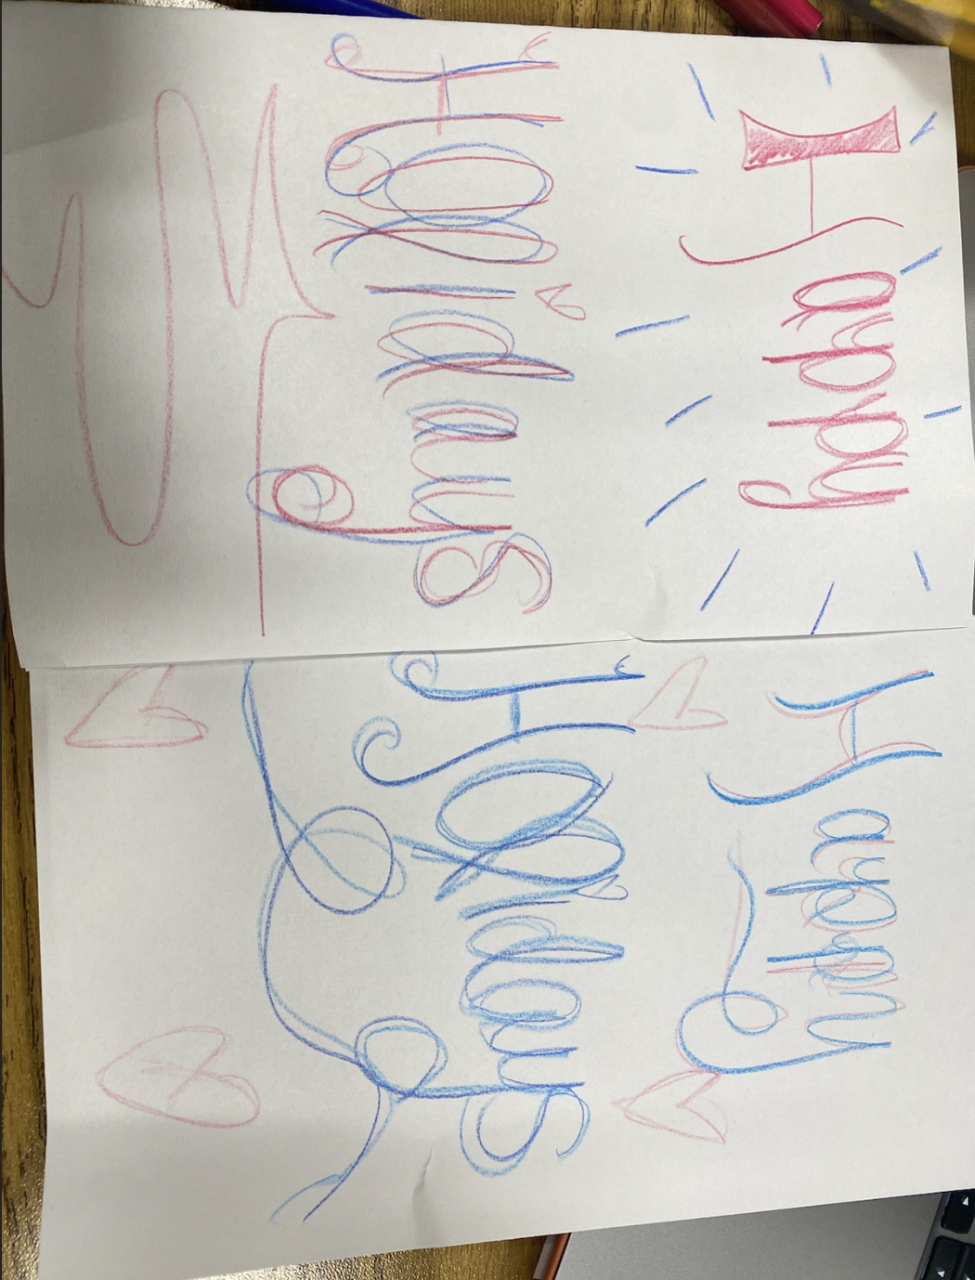 Happy
Holidays
Happy
Holidays